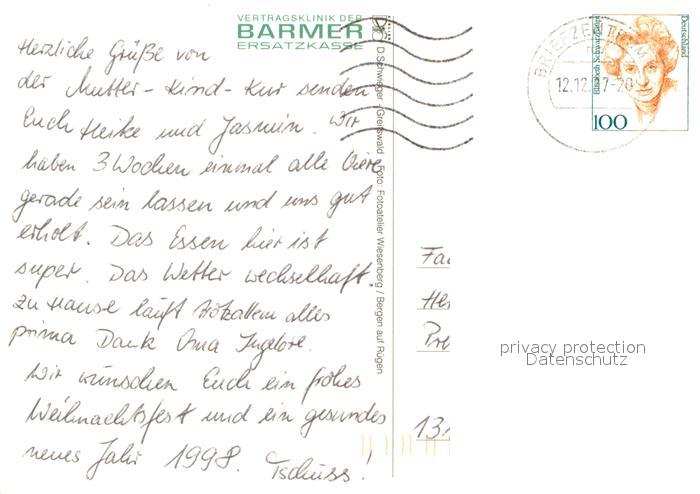 VERTRAGSKLINIK DER
BARMER
ERSATZKASSE
Herzliche Grüße von
der Mutter-Kind-Kur senden
Euch Heike und Jasmin. Wir
haben 3 Wochen einmal alle Viere
gerade sein lassen und uns gut
erholt. Das Essen hier ist
super. Das Wetter wechselhaft.
Zu Hause läuft trotz allem alles
prima Dank Oma Ingelore.
Wir wünschen Euch ein frohes
Weihnachtsfest und ein gesundes
neues Jahr 1998. Tschüss!
D.Schwieger - Greifswald Foto: Fotoatelier Wiesenberg / Bergen auf Rügen
BRIEFZENTRUM
12.12. 97-20
Elisabeth Schwarzkopf
Deutschland
100
Fa
He
Pre
13
privacy protection
Datenschutz